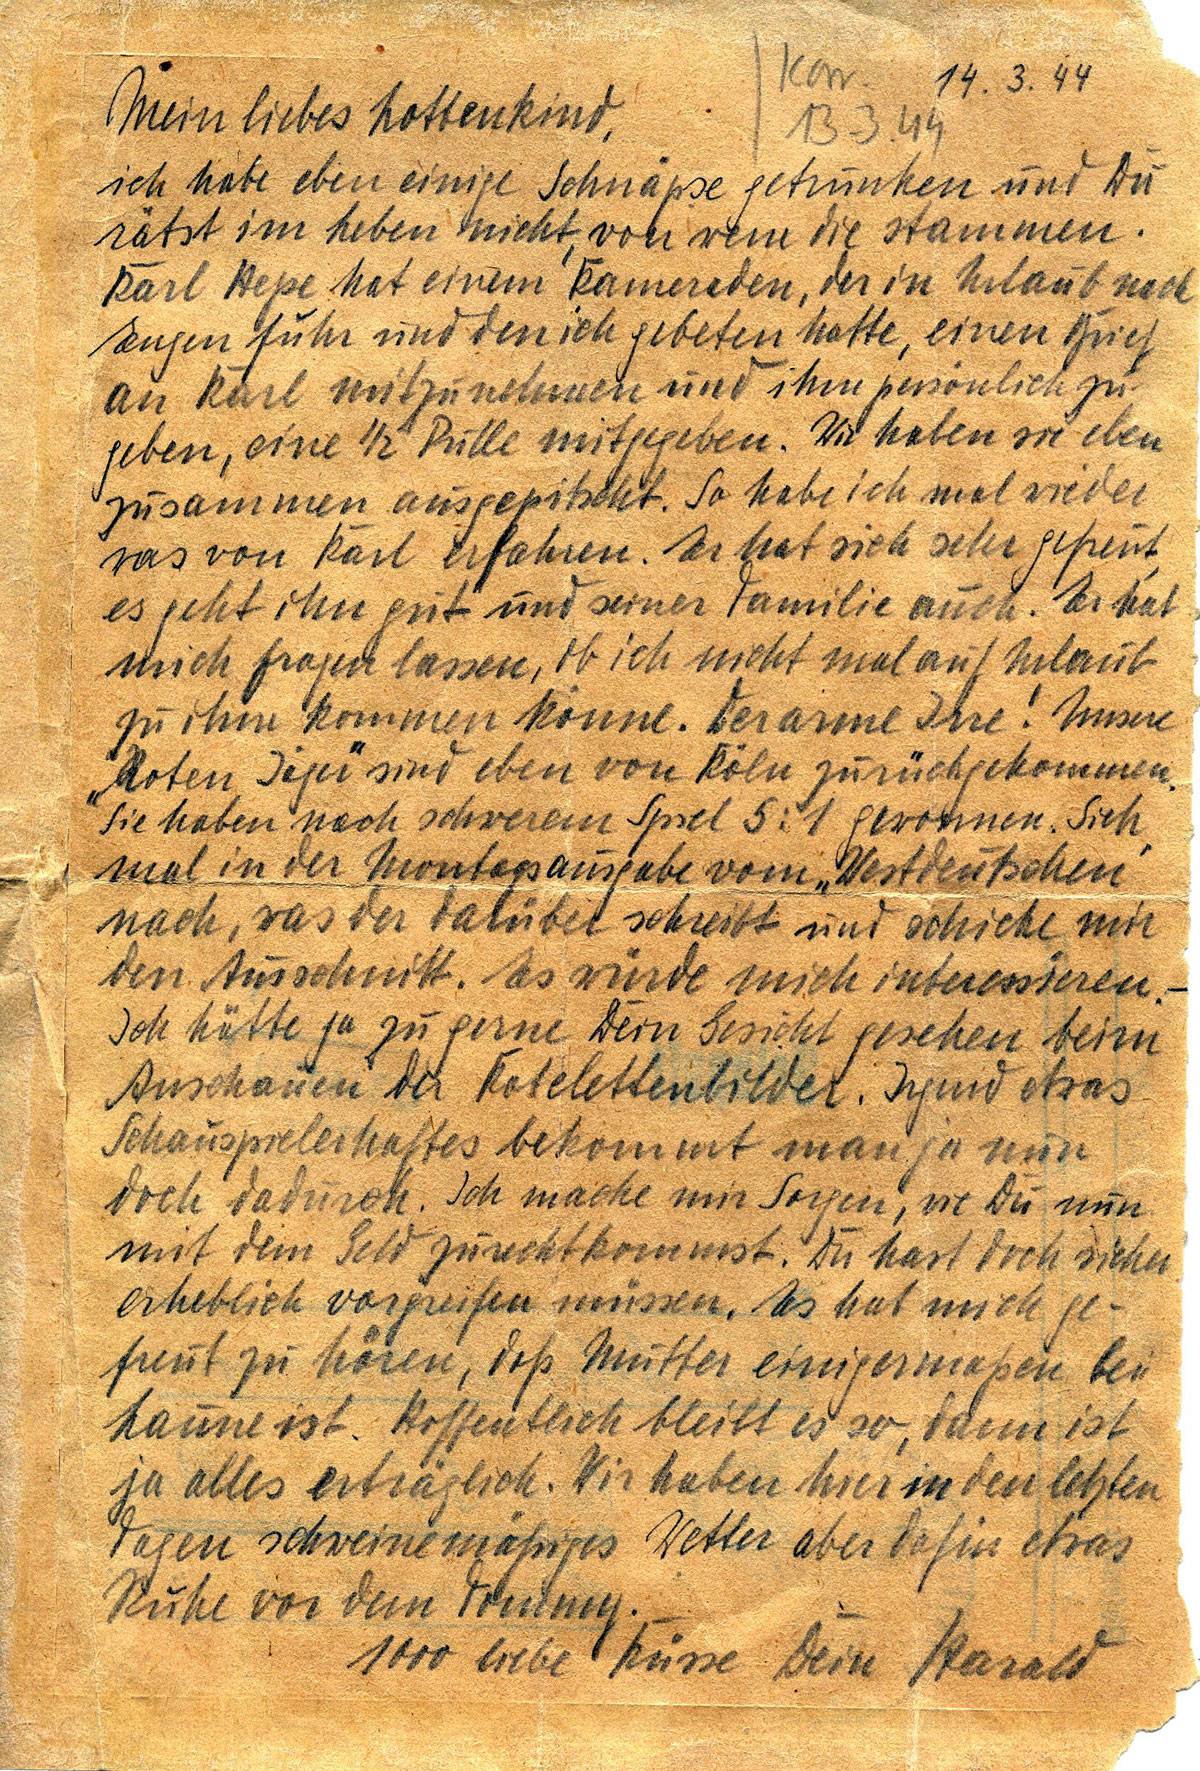 Korr. 14.3.44
13.3.44
Mein liebes Lottenkind,
ich habe eben einige Schnäpse getrunken und Du
rätst im Leben nicht, von wem die stammen.
Karl Hepe hat einem Kameraden, der in Urlaub nach
fuhr und den ich gebeten hatte, einen Brief
an Karl mitzunehmen und ihm persönlich zu
geben, eine 1/2 Pulle mitgegeben. Wir haben sie eben
zusammen ausgepitscht. So habe ich mal wieder
was von Karl erfahren. Er hat sich sehr gefreut,
es geht ihm gut und seiner Familie auch. Er hat
mich fragen lassen, ob ich nicht mal auf Urlaub
zu ihm kommen könne. Der arme Irre! Unsere
„Roten Jäger" sind eben von Köln zurückgekommen.
Sie haben nach schwerem Spiel 5:1 gewonnen. Sieh
mal in der Montagsausgabe vom „Westdeutschen"
nach, was der darüber schreibt und schicke mir
den Ausschnitt. Es würde mich interessieren.-
Ich hätte ja zu gerne Dein Gesicht gesehen beim
Anschauen der Kotelettenbilder. Irgend etwas
Schauspielerhaftes bekommt man ja nun
doch dadurch. Ich mache mir Sorgen, wie Du nun
mit dem Geld zurechtkommst. Du hast doch sicher
erheblich vorgreifen müssen. Es hat mich ge-
freut zu hören, daß Mutter einigermaßen bei
Laune ist. Hoffentlich bleibt es so, dann ist
ja alles erträglich. Wir haben hier in den letzten
Tagen schweinemäßiges Wetter aber dafür etwas
Ruhe vor dem Tommy.
1000 liebe Küsse Dein Harald